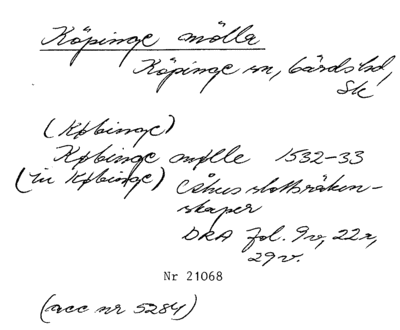 Köpinge mölla
Köpinge sn, Gärds hd,
Sk
(Købinge)
Købinge mølle 1532-33
(in Købinge) Åhus slottsräken-
skaper
DRA fol. 9v, 22r,
29v.
Nr 21068
(acc nr 5284)